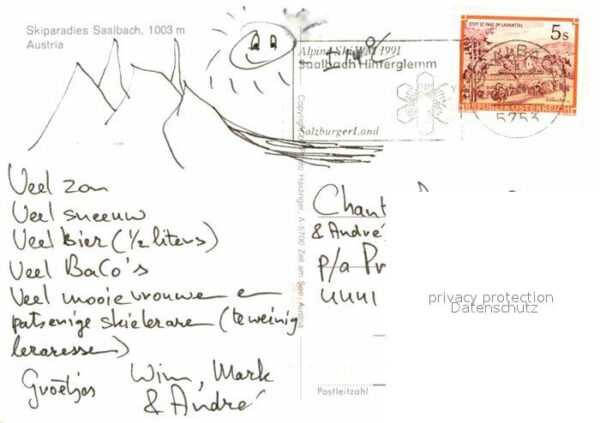 Skiparadies Saalbach, 1003 m
Austria
Alpine Ski WM 1991
Saalbach Hinterglemm
SalzburgerLand
STIFT ST. PAUL IM LAVANTTAL
5s
REPUBLIK ÖSTERREICH
5753
Veel zon
Veel sneeuw
Veel bier (1/2 liters)
Veel BaCo's
Veel mooie vrouwen en
patserige skieleraren (te weinig
leraressen)
Groetjes Wim, Mark
& André
Haidinger, A-5700 Zell am See, Austria
Chant
& André
p/a Pr
4441
privacy protection
Datenschutz
Postleitzahl